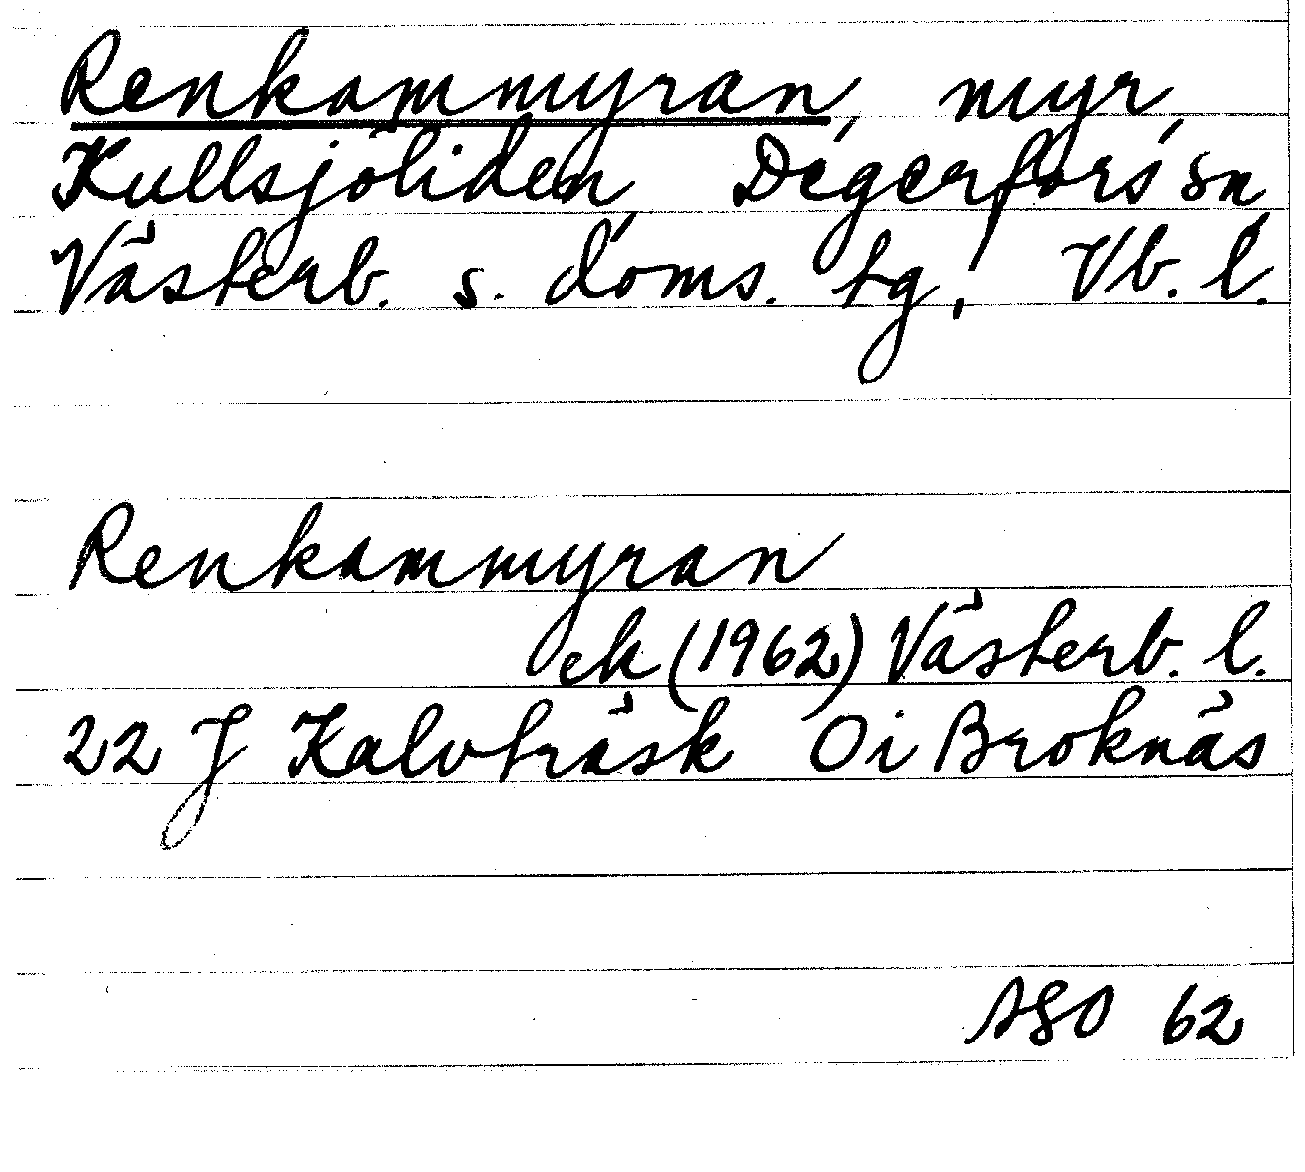 Renkammyran, myr,
Kullsjöliden, Degerfors sn,
Västerb. s. doms. tg, Vb. l.
Renkammyran
ek (1962) Västerb. l.
22 J Kalvträsk Oi Broknäs
ASO 62